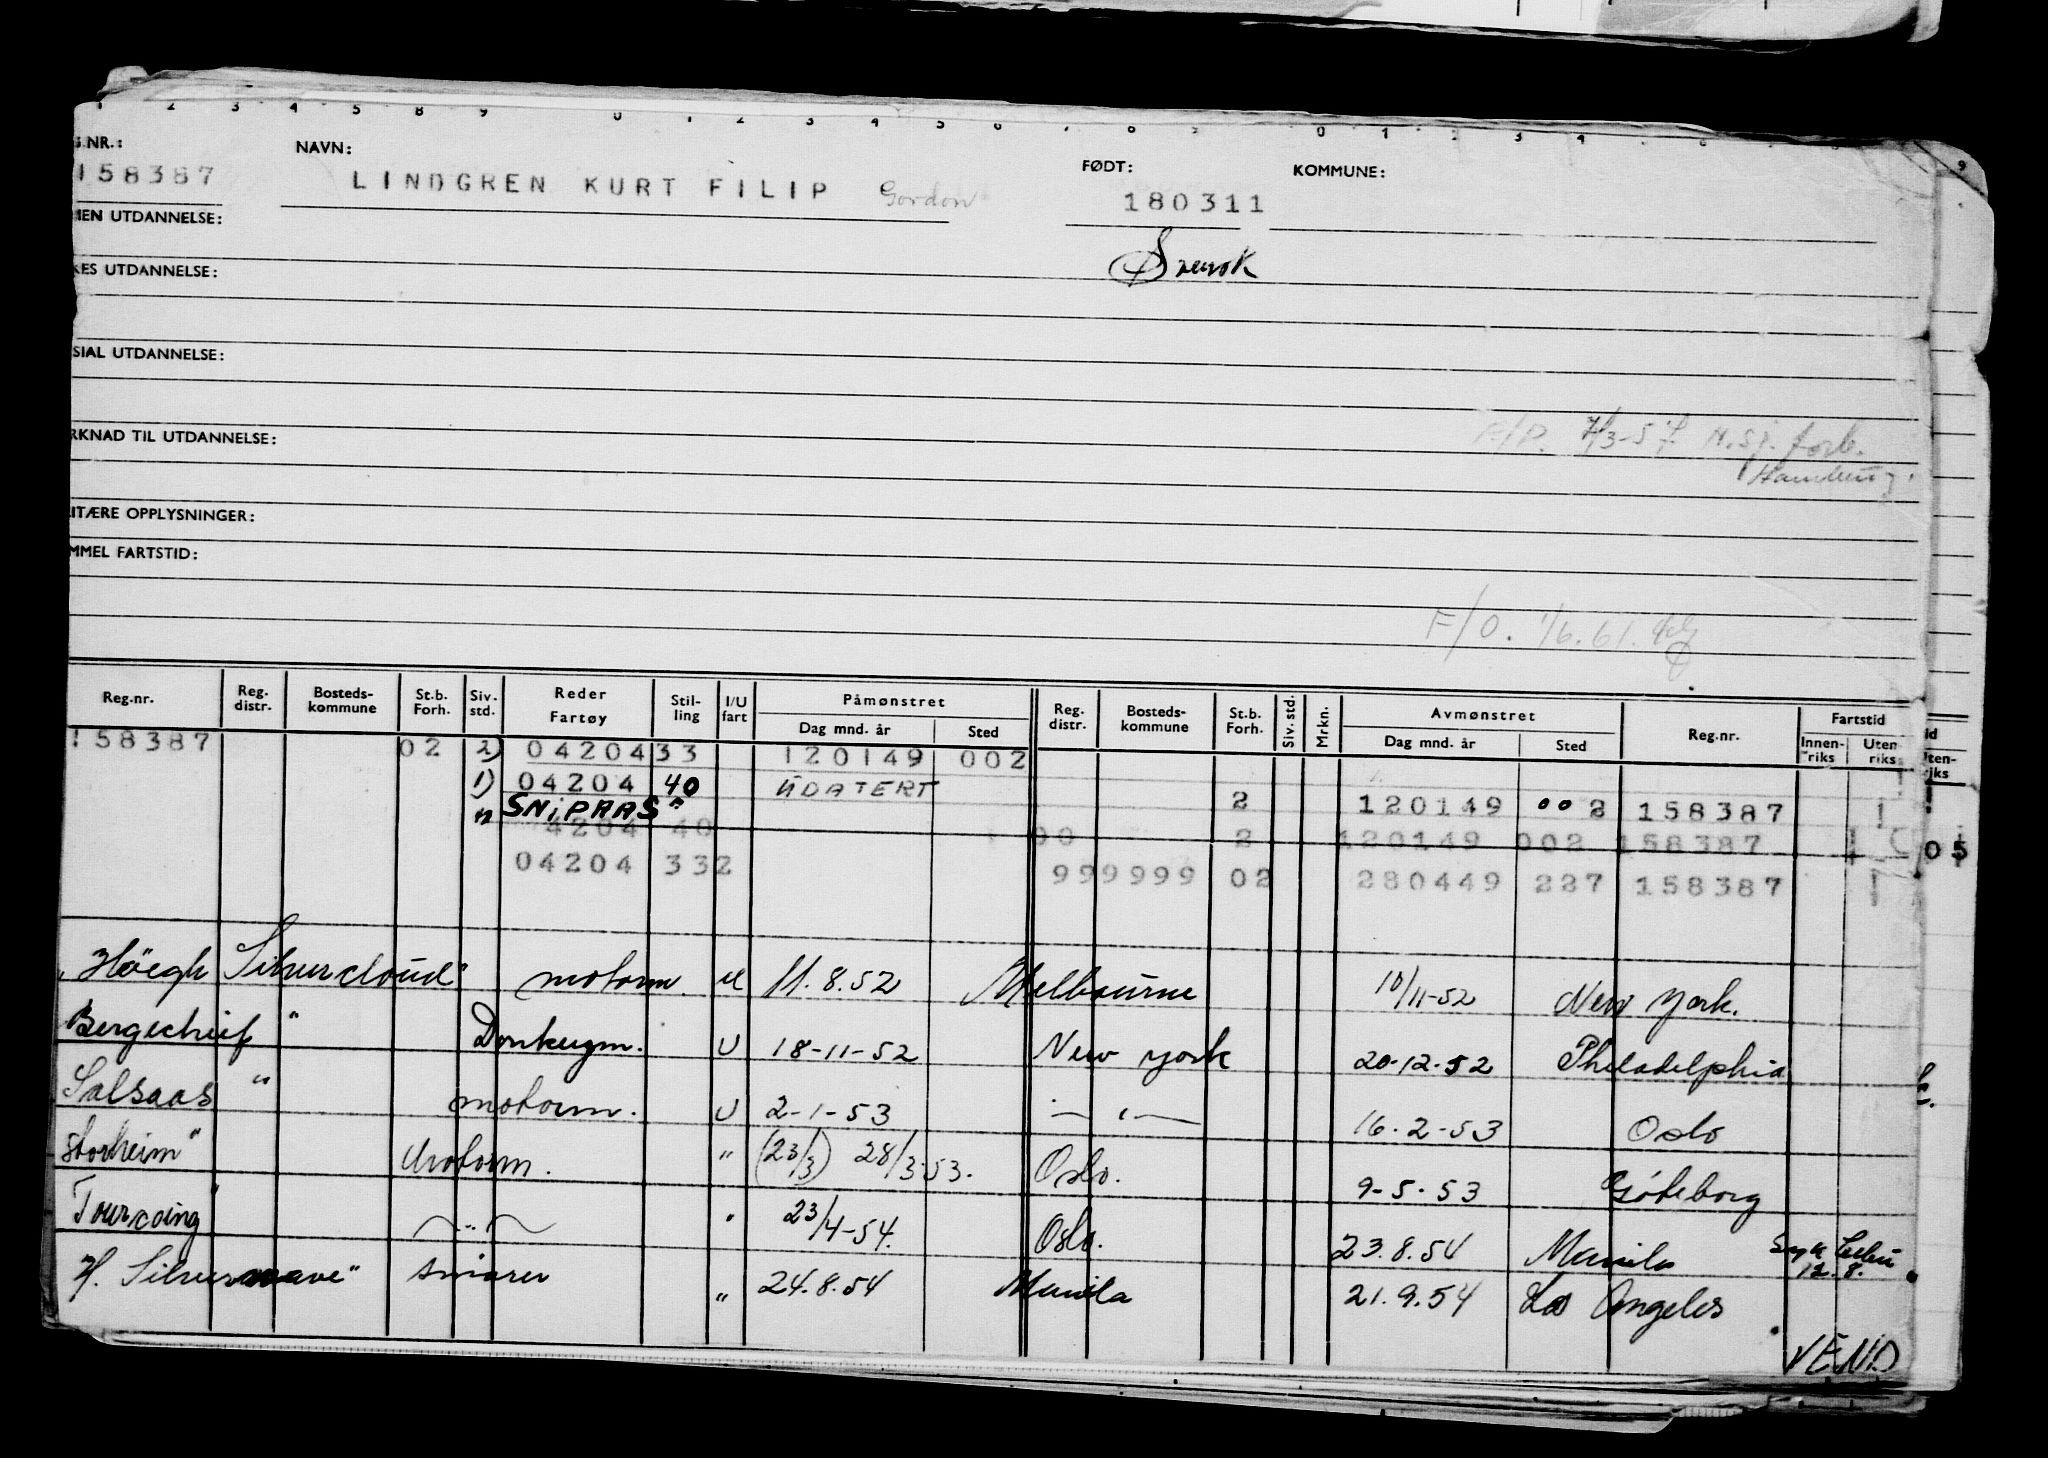 G.NR.: NAVN: FØDT: KOMMUNE:
158387 LINDGREN KURT FILIP Gordon 180311
MEN UTDANNELSE:
Svensk
KES UTDANNELSE:
SIAL UTDANNELSE:
RKNAD TIL UTDANNELSE:
F/P. 7/3-57 N.sj. fork.
Hamburg.
ITÆRE OPPLYSNINGER:
MMEL FARTSTID:
F/O. 1/6.61.
Reg.nr. Reg. distr. Bosteds- kommune St.b. Forh. Siv. std. Reder Fartøy Stil- ling I/U fart Påmønstret Dag mnd. år Sted Reg. distr. Bosteds- kommune St.b. Forh. Siv. std. Mrkn. Avmønstret Dag mnd. år Sted Reg.nr. Fartstid Innen- riks Uten riks
158387 02 2) 04204 33 120149 002
1) 04204 40 UDATERT
" SNIPAAS" 2 120149 002 158387
4204 40 00 2 120149 002 158387 05
04204 332 999999 02 280449 227 158387
"Höegh Silvercloud" motorm. U 11.8.52 Melbourne 10/11-52 New York.
Bergechief " Donkeym. U 18-11-52 New York 20-12-52 Philadelphia
Salsaas " motorm. U 2-1-53 — " — 16.2-53 Oslo
Storheim" Motorm. " (23/3) 28/3-53. Oslo. 9-5-53 Göteborg
Tourcoing" — " — " 23/4-54. Oslo. 23.8.54 Manila Syk Cebu
12.8.
H. Silverwave" smører " 24.8.54 Manila 21.9.54 Los Angeles
VEND